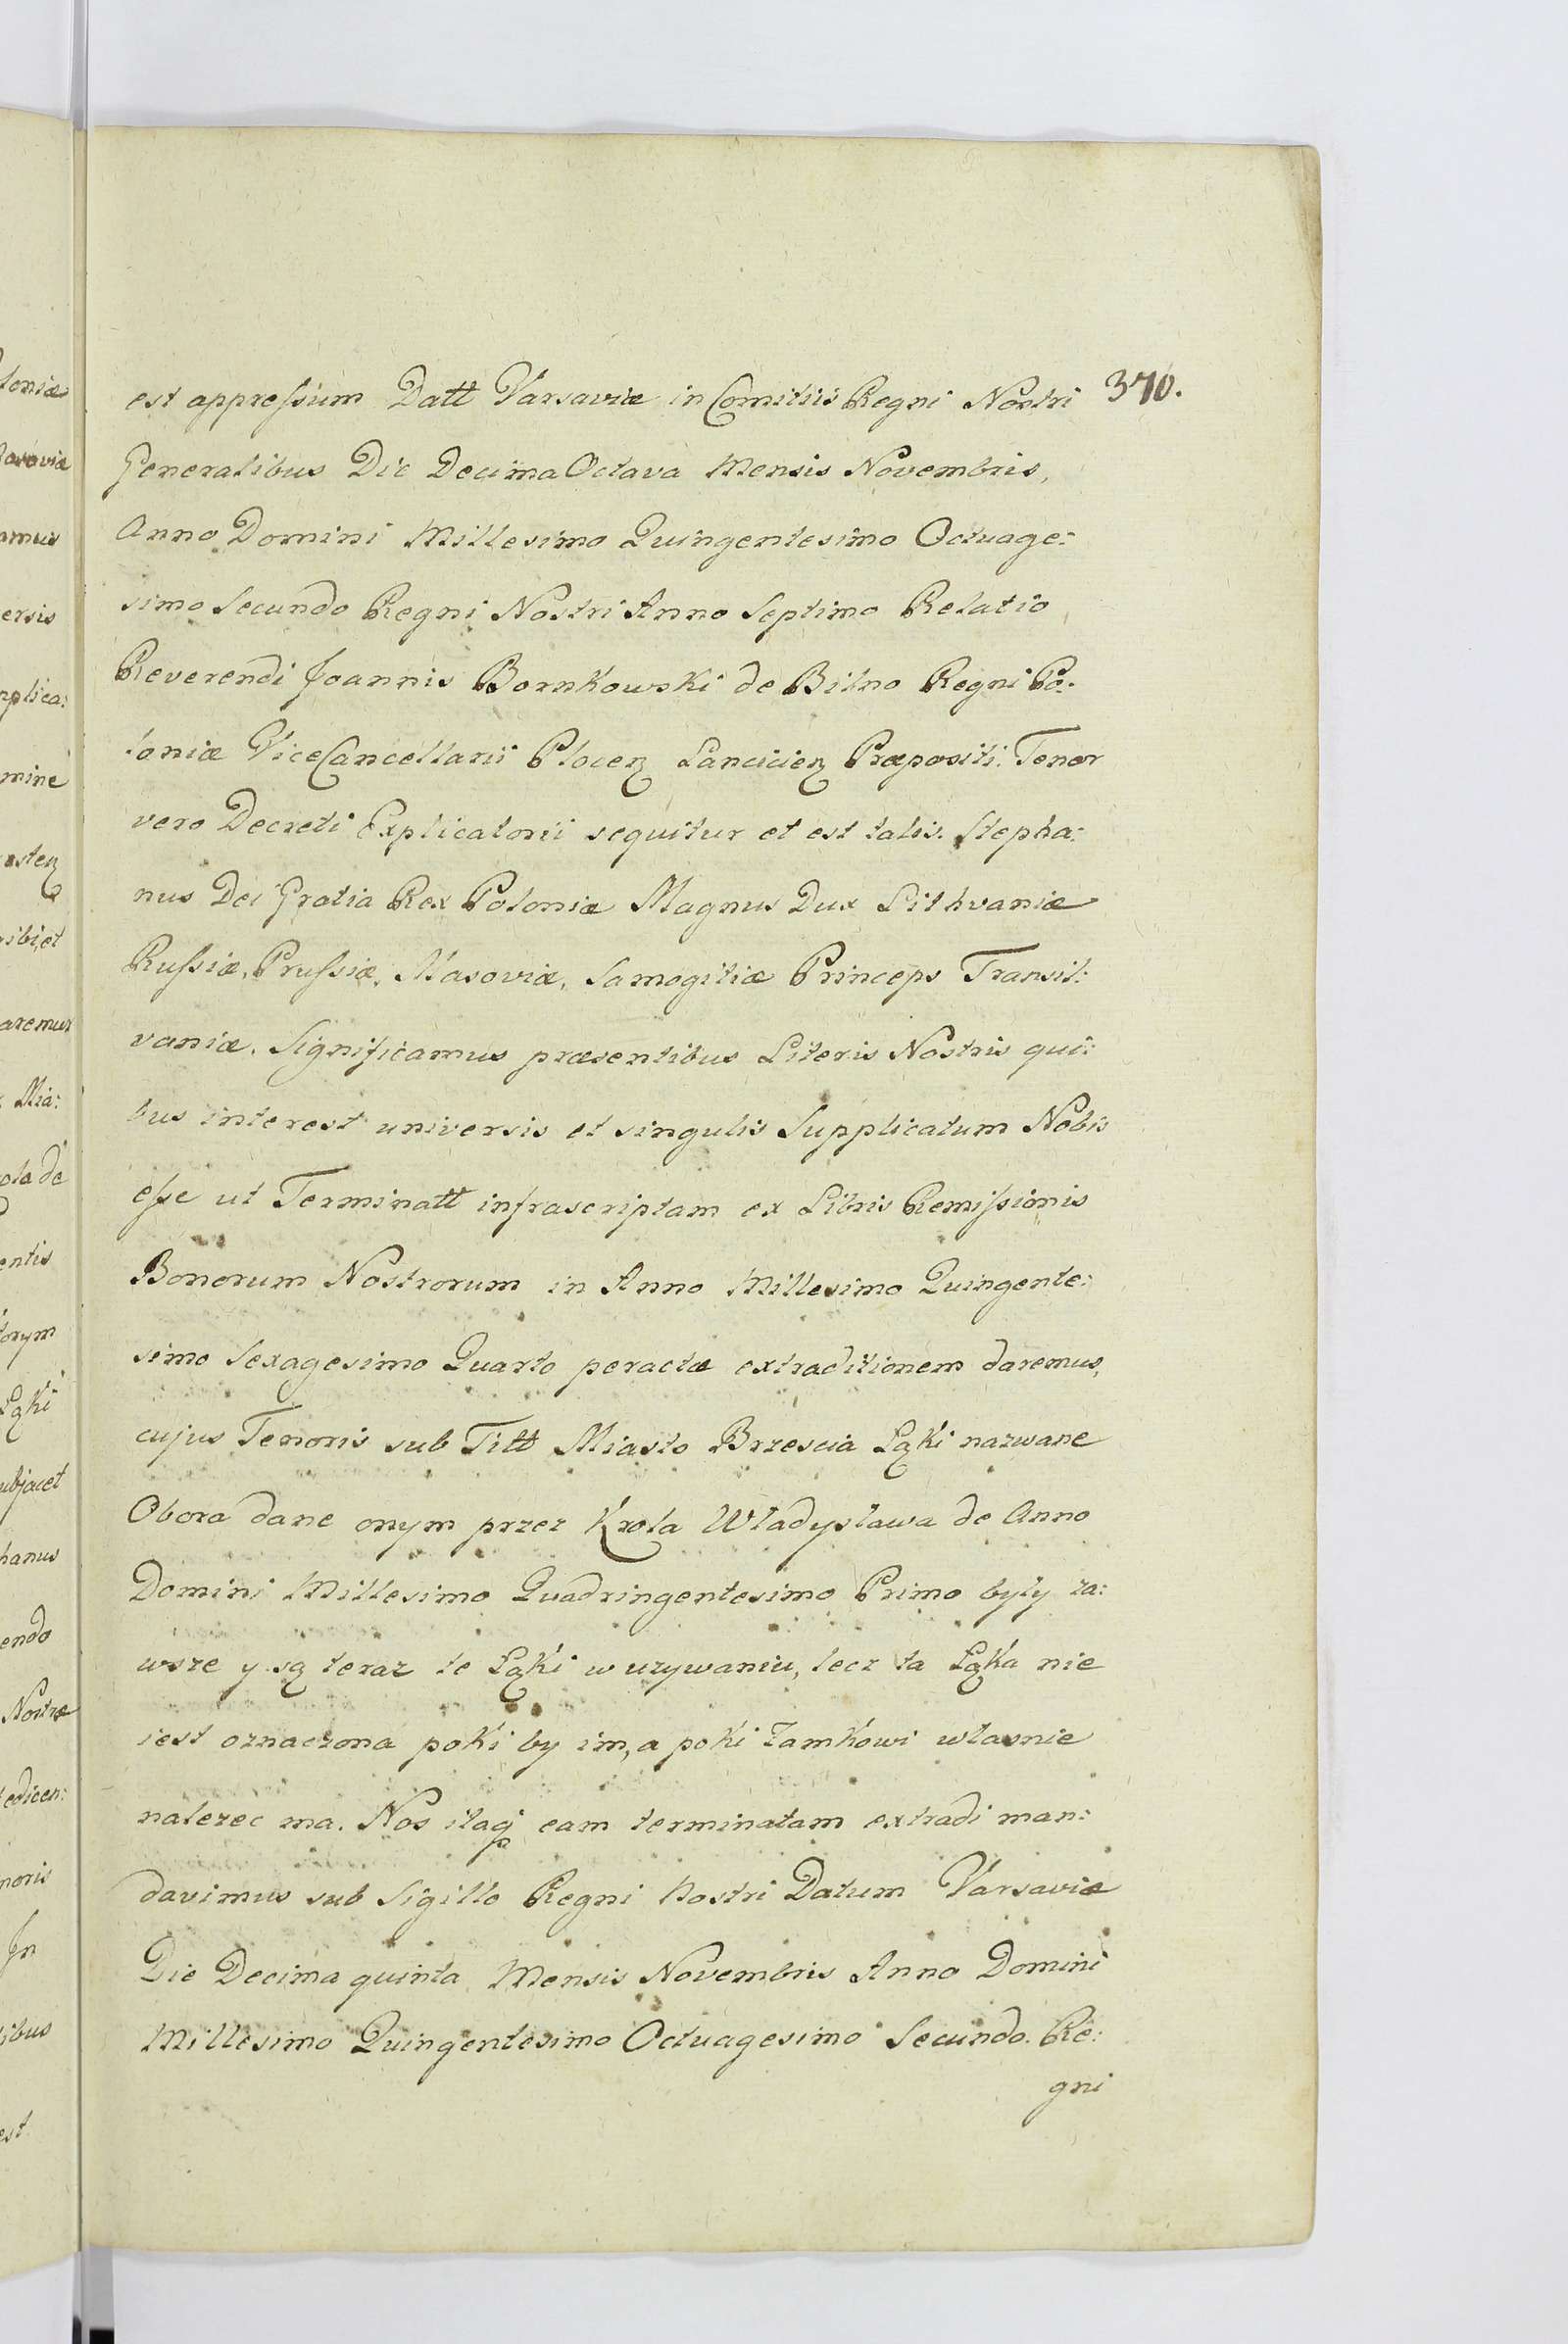 370.
est appressum Datt Varsaviæ in Comitiis Regni Nostri
Generalibus Die Decima Octava Mensis Novembris,
Anno Domini Millesimo Quingentesimo Octuage:
simo Secundo Regni Nostri Anno Septimo Relatio
Reverendi Joannis Bornkowski de Bilno Regni Po:
loniæ ViceCancellarii Plocen Lancicien Præpositi. Tenor
vero Decreti Explicatorii sequitur et est talis. Stepha:
nus Dei Gratia Rex Poloniæ Magnus Dux Lithvaniæ
Russiæ, Prussiæ, Masoviæ, Samogitiæ Princeps Transil:
vaniæ. Significamus præsentibus Literis Nostris qui:
bus interest universis et singulis Supplicatum Nobis
esse ut Terminatt infrascriptam ex Libris Remissionis
Bonorum Nostrorum in Anno Millesimo Quingente:
simo Sexagesimo Quarto peractæ extraditionem daremus,
cujus Tenoris sub Titt Miasto Brzescia Łąki nazwane
Obora dane onym przez Krola Władysława de Anno
Domini Millesimo Quadringentesimo Primo były za:
wsze y są teraz te Łąki w uzywaniu, lecz ta Łąka nie
iest oznaczona poki by im, a poki Zamkowi własnie
nalezec ma. Nos itaq eam terminatam extradi man:
davimus sub Sigillo Regni Nostri Datum Varsaviæ
Die Decima quinta Mensis Novembris Anno Domini
Millesimo Quingentesimo Octuagesimo Secundo. Re:
gni